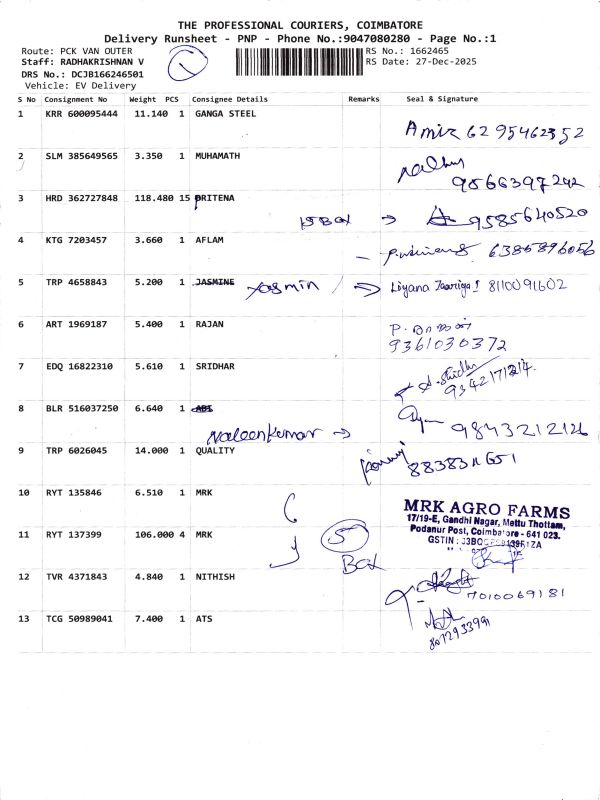 THE PROFESSIONAL COURIERS, COIMBATORE
Delivery Runsheet - PNP - Phone No.:9047080280 - Page No.:1
Route: PCK VAN OUTER RS No.: 1662465
Staff: RADHAKRISHNAN V RS Date: 27-Dec-2025
DRS No.: DCJB166246501
Vehicle: EV Delivery
S No Consignment No Weight PCS Consignee Details Remarks Seal & Signature
1 KRR 600095444 11.140 1 GANGA STEEL
Amir 6295462352
2 SLM 385649565 3.350 1 MUHAMATH
9566397242
3 HRD 362727848 118.480 15 BRITENA
15 Box → 9585640520
4 KTG 7203457 3.660 1 AFLAM
6385896056
5 TRP 4658843 5.200 1 JASMINE Yasmin → Liyana 8110091602
6 ART 1969187 5.400 1 RAJAN
9361030372
7 EDQ 16822310 5.610 1 SRIDHAR
8 BLR 516037250 6.640 1
Naleenkumar → 9843212126
9 TRP 6026045 14.000 1 QUALITY
10 RYT 135846 6.510 1 MRK
MRK AGRO FARMS
17/19-E, Gandhi Nagar, Mettu Thottam,
Podanur Post, Coimbatore - 641 023.
11 RYT 137399 106.000 4 MRK
5
Box
12 TVR 4371843 4.840 1 NITHISH
7010069181
13 TCG 50989041 7.400 1 ATS